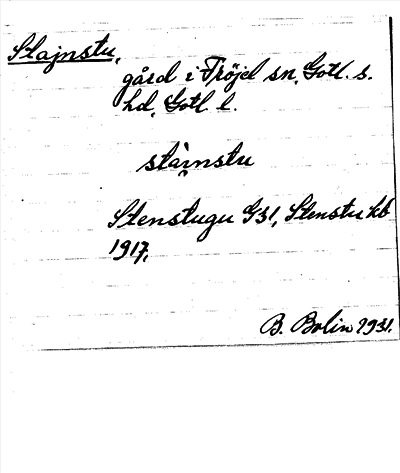 Stajnstu,
gård i Fröjel sn, Gotl. s.
hd, Gotl. l.
stai̯nstu
Stenstugu G31, Stenstu kb
1917.
B. Bolin 1931.